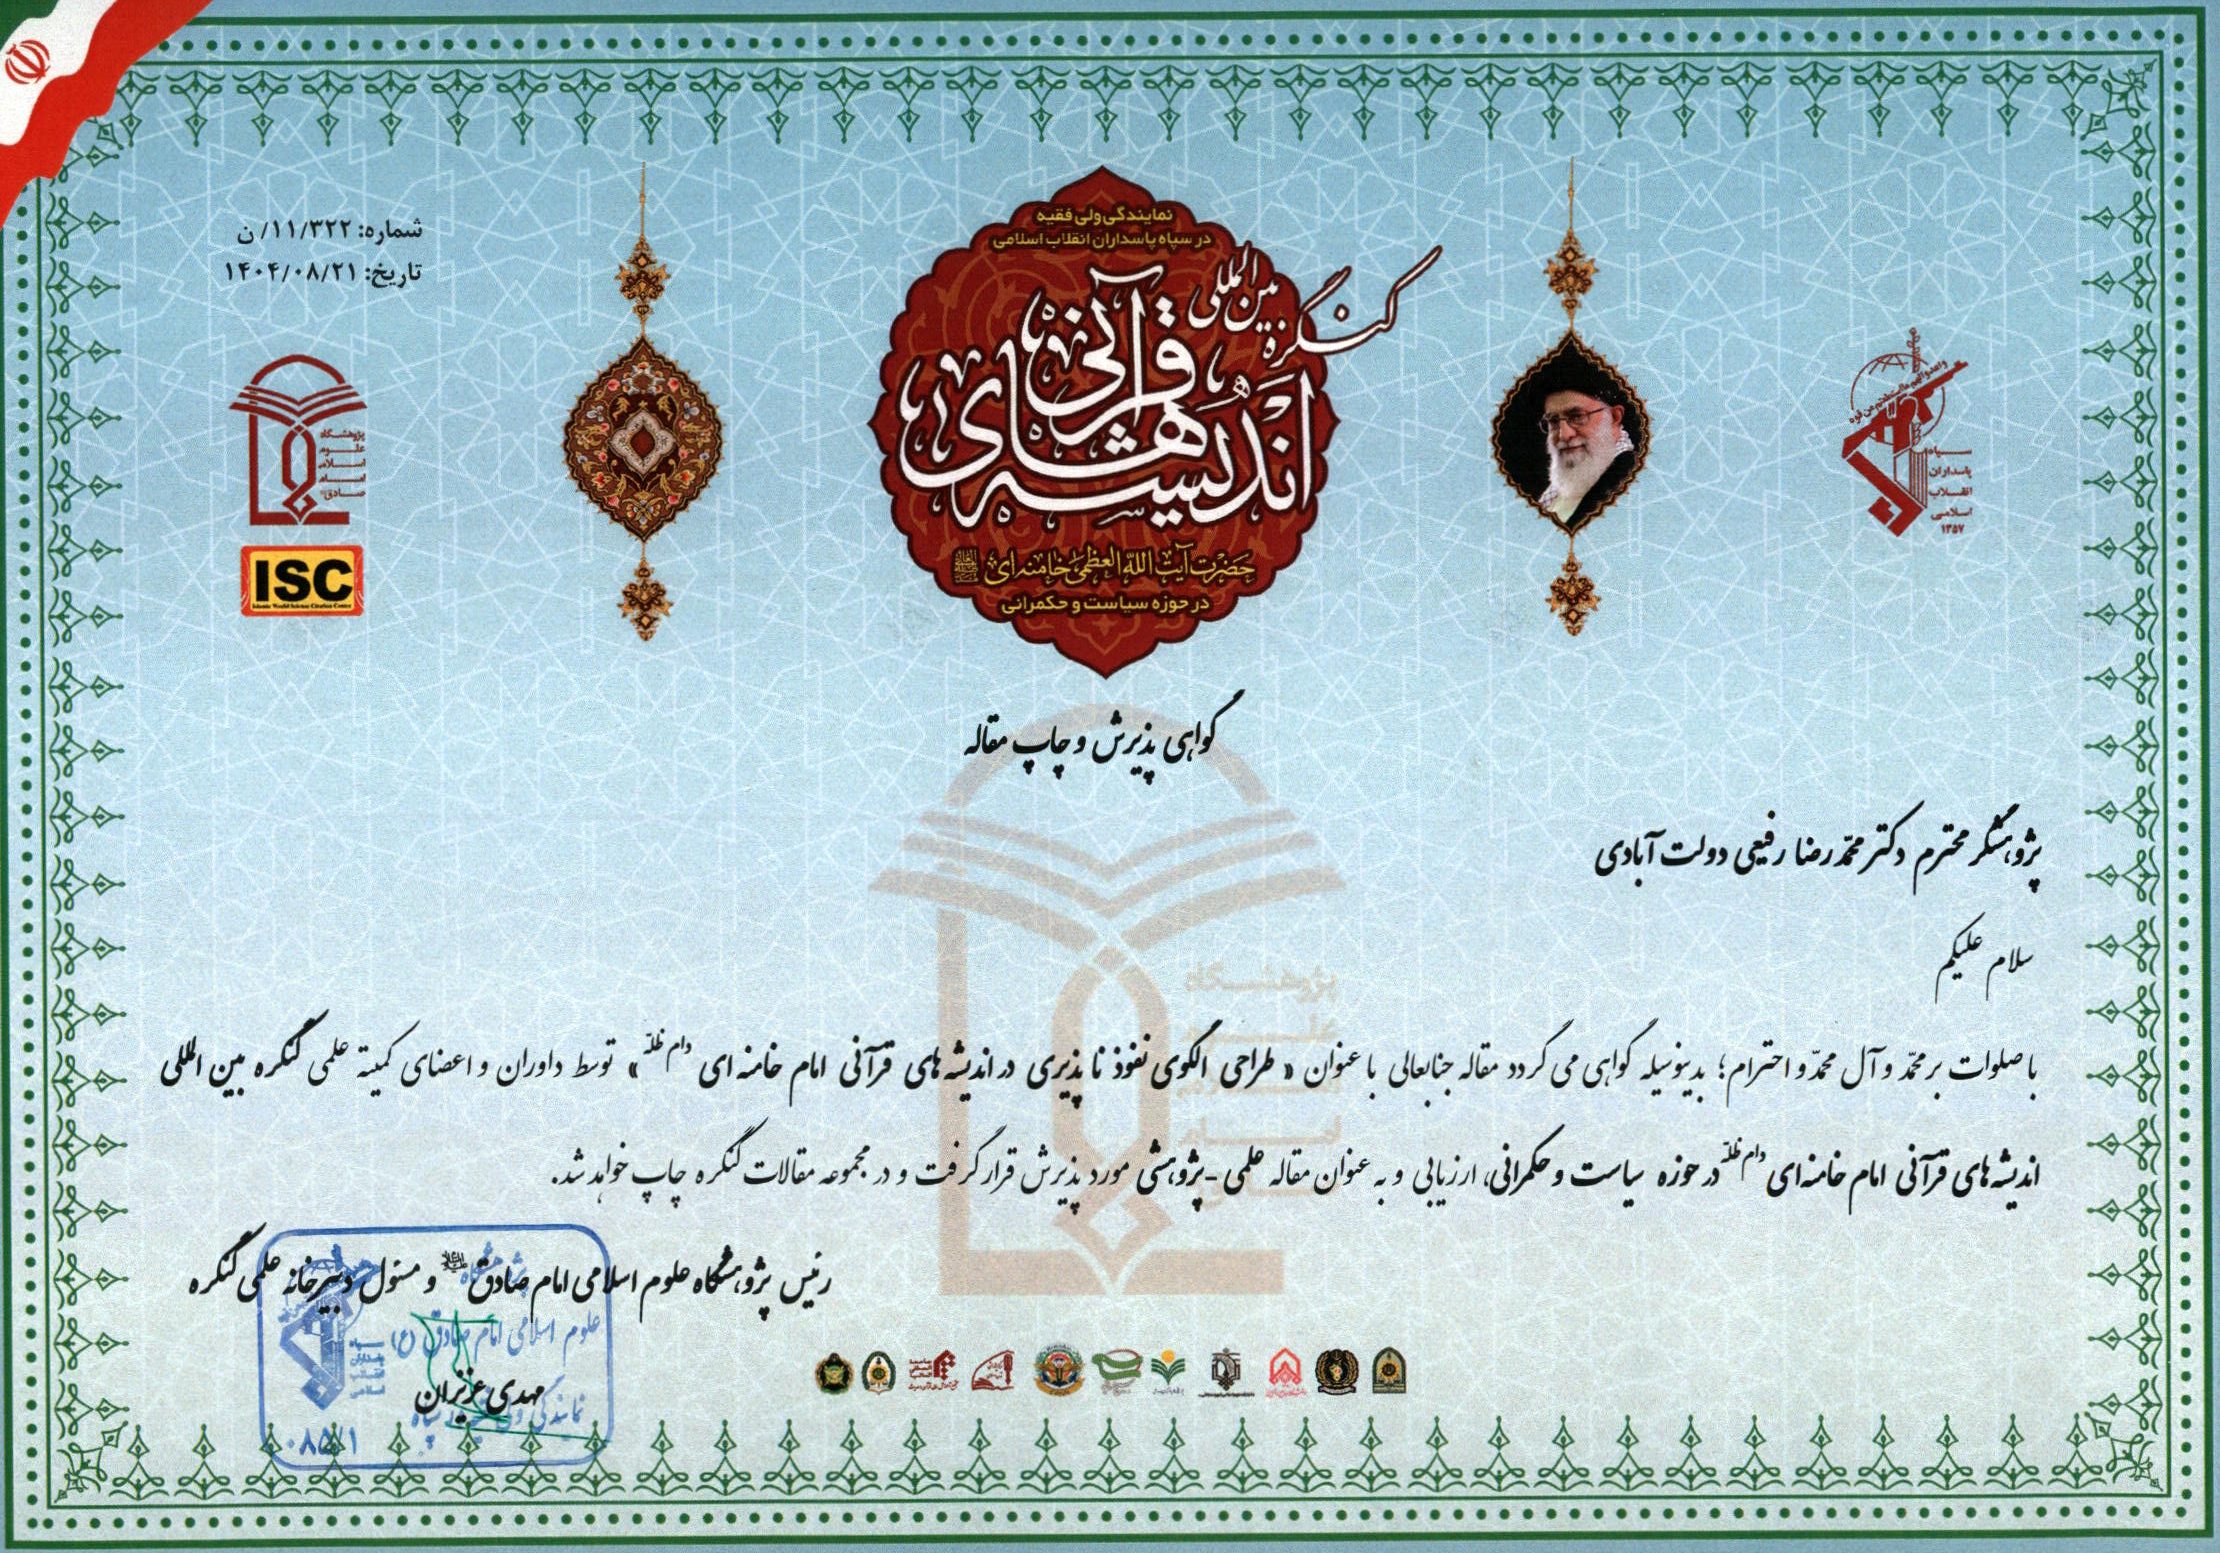 شماره: ۱۱/۳۲۲/ ن
تاریخ: ۱۴۰۴/۰۸/۲۱
نمایندگی ولی فقیه
در سپاه پاسداران انقلاب اسلامی
کنگره بین المللی
اندیشه های قرآنی
حضرت آیت الله العظمی خامنه ای
در حوزه سیاست و حکمرانی
سپاه
پاسداران
انقلاب
اسلامی
۱۳۵۷
پژوهشگاه
علوم
اسلامی
امام
صادق
ISC
Islamic World Science Citation Center
گواهی پذیرش و چاپ مقاله
پژوهشگر محترم دکتر محمّد رضا رفیعی دولت آبادی
سلام علیکم
با صلوات بر محمّد و آل محمّد و احترام؛ بدینوسیله گواهی می گردد مقاله جنابعالی با عنوان « طراحی الگوی نفوذ ناپذیری در اندیشه های قرآنی امام خامنه ای دام ظلّه » توسط داوران و اعضای کمیته علمی کنگره بین المللی
اندیشه های قرآنی امام خامنه ای دام ظلّه در حوزه سیاست و حکمرانی، ارزیابی و به عنوان مقاله علمی - پژوهشی مورد پذیرش قرار گرفت و در مجموعه مقالات کنگره چاپ خواهد شد.
رئیس پژوهشگاه علوم اسلامی امام صادق و مسئول دبیرخانه علمی کنگره
پژوهشگاه
علوم اسلامی امام صادق (ع)
مهدی عزیزان
نمایندگی ولی فقیه در سپاه